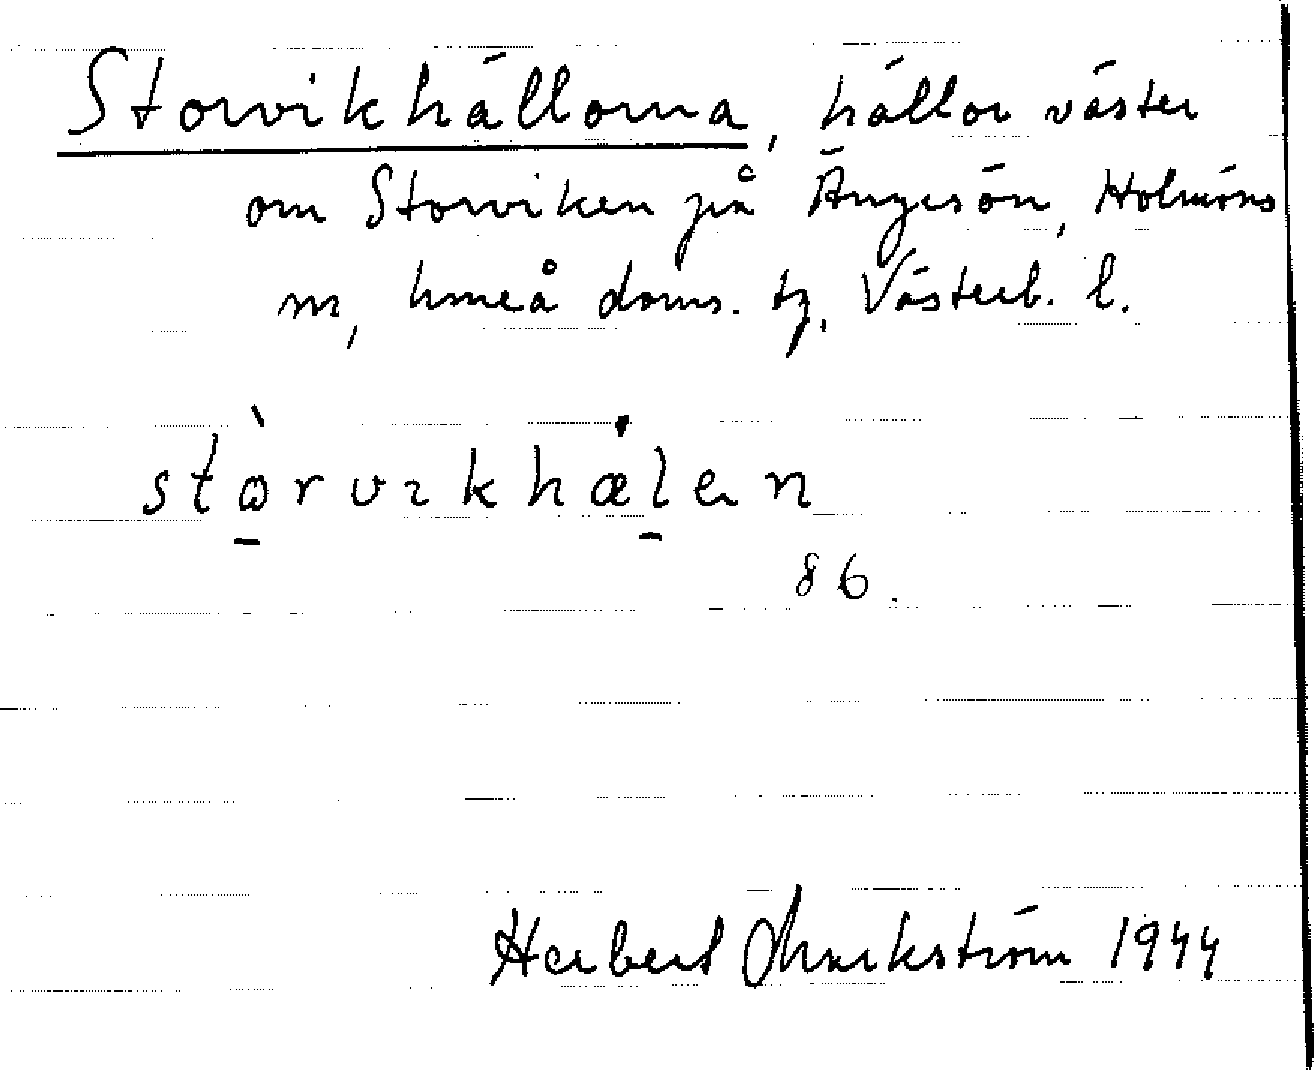 Storvikhällorna, hällor väster
om Storviken på Ängesön, Holmöns
m, Umeå doms. tg, Västerb. l.
stɷ̀rvɩkhælen
86.
Herbert Markström 1944